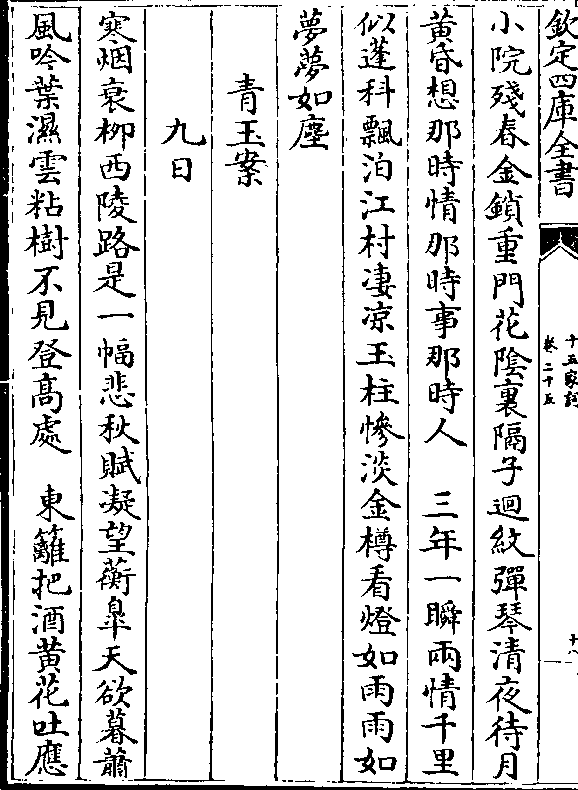 欽定四庫全書
十五家詞
卷二十五
十八
小院殘春金鎖重門花陰裏隔子迴紋彈琴清夜待月
黃昏想那時情那時事那時人　三年一瞬兩情千里
似蓬科飄泊江村凄凉玉柱慘淡金樽看燈如雨雨如
夢夢如塵
青玉案
九日
寒烟衰栁西陵路是一幅悲秋賦凝望蘅臯天欲暮蕭
風吟葉濕雲粘樹不見登高處　東籬把酒黃花吐應